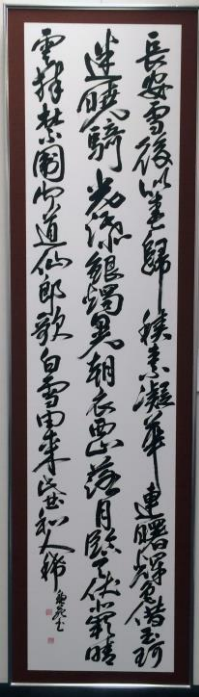 長安雪後似春歸積素凝華連曙輝色借玉珂
迷曉騎光添銀燭晃朝衣西山落月臨天仗北闕晴
雲捧禁闈聞道仙郎歌白雪由来此曲和人稀